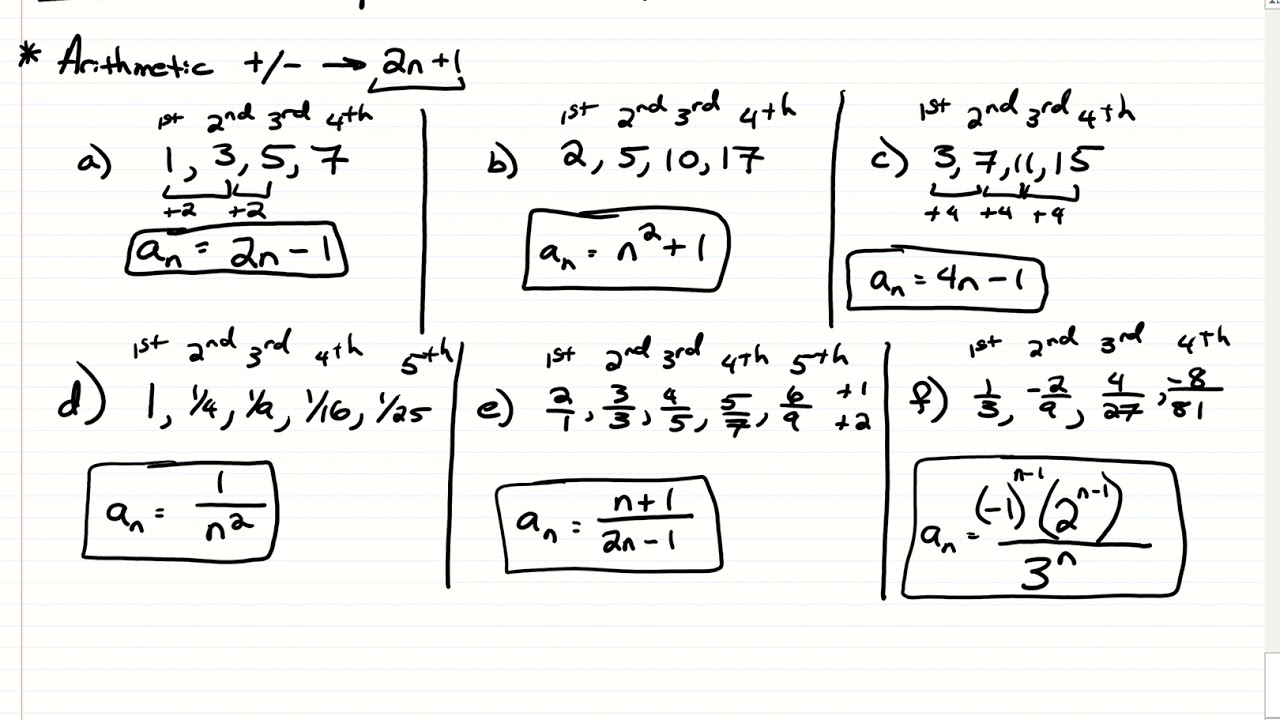 * Arithmetic +/- → 2n+1
1st 2nd 3rd 4th
a) 1, 3, 5, 7
+2 +2
aₙ = 2n - 1
1st 2nd 3rd 4th
b) 2, 5, 10, 17
aₙ = n² + 1
1st 2nd 3rd 4th
c) 3, 7, 11, 15
+4 +4 +4
aₙ = 4n - 1
1st 2nd 3rd 4th 5th
d) 1, 1/4, 1/9, 1/16, 1/25
aₙ = 1/n²
1st 2nd 3rd 4th 5th
e) 2/1, 3/3, 4/5, 5/7, 6/9 +1 +2
aₙ = (n+1)/(2n-1)
1st 2nd 3rd 4th
f) 1/3, -2/9, 4/27, -8/81
aₙ = (-1)ⁿ⁻¹(2ⁿ⁻¹)/3ⁿ